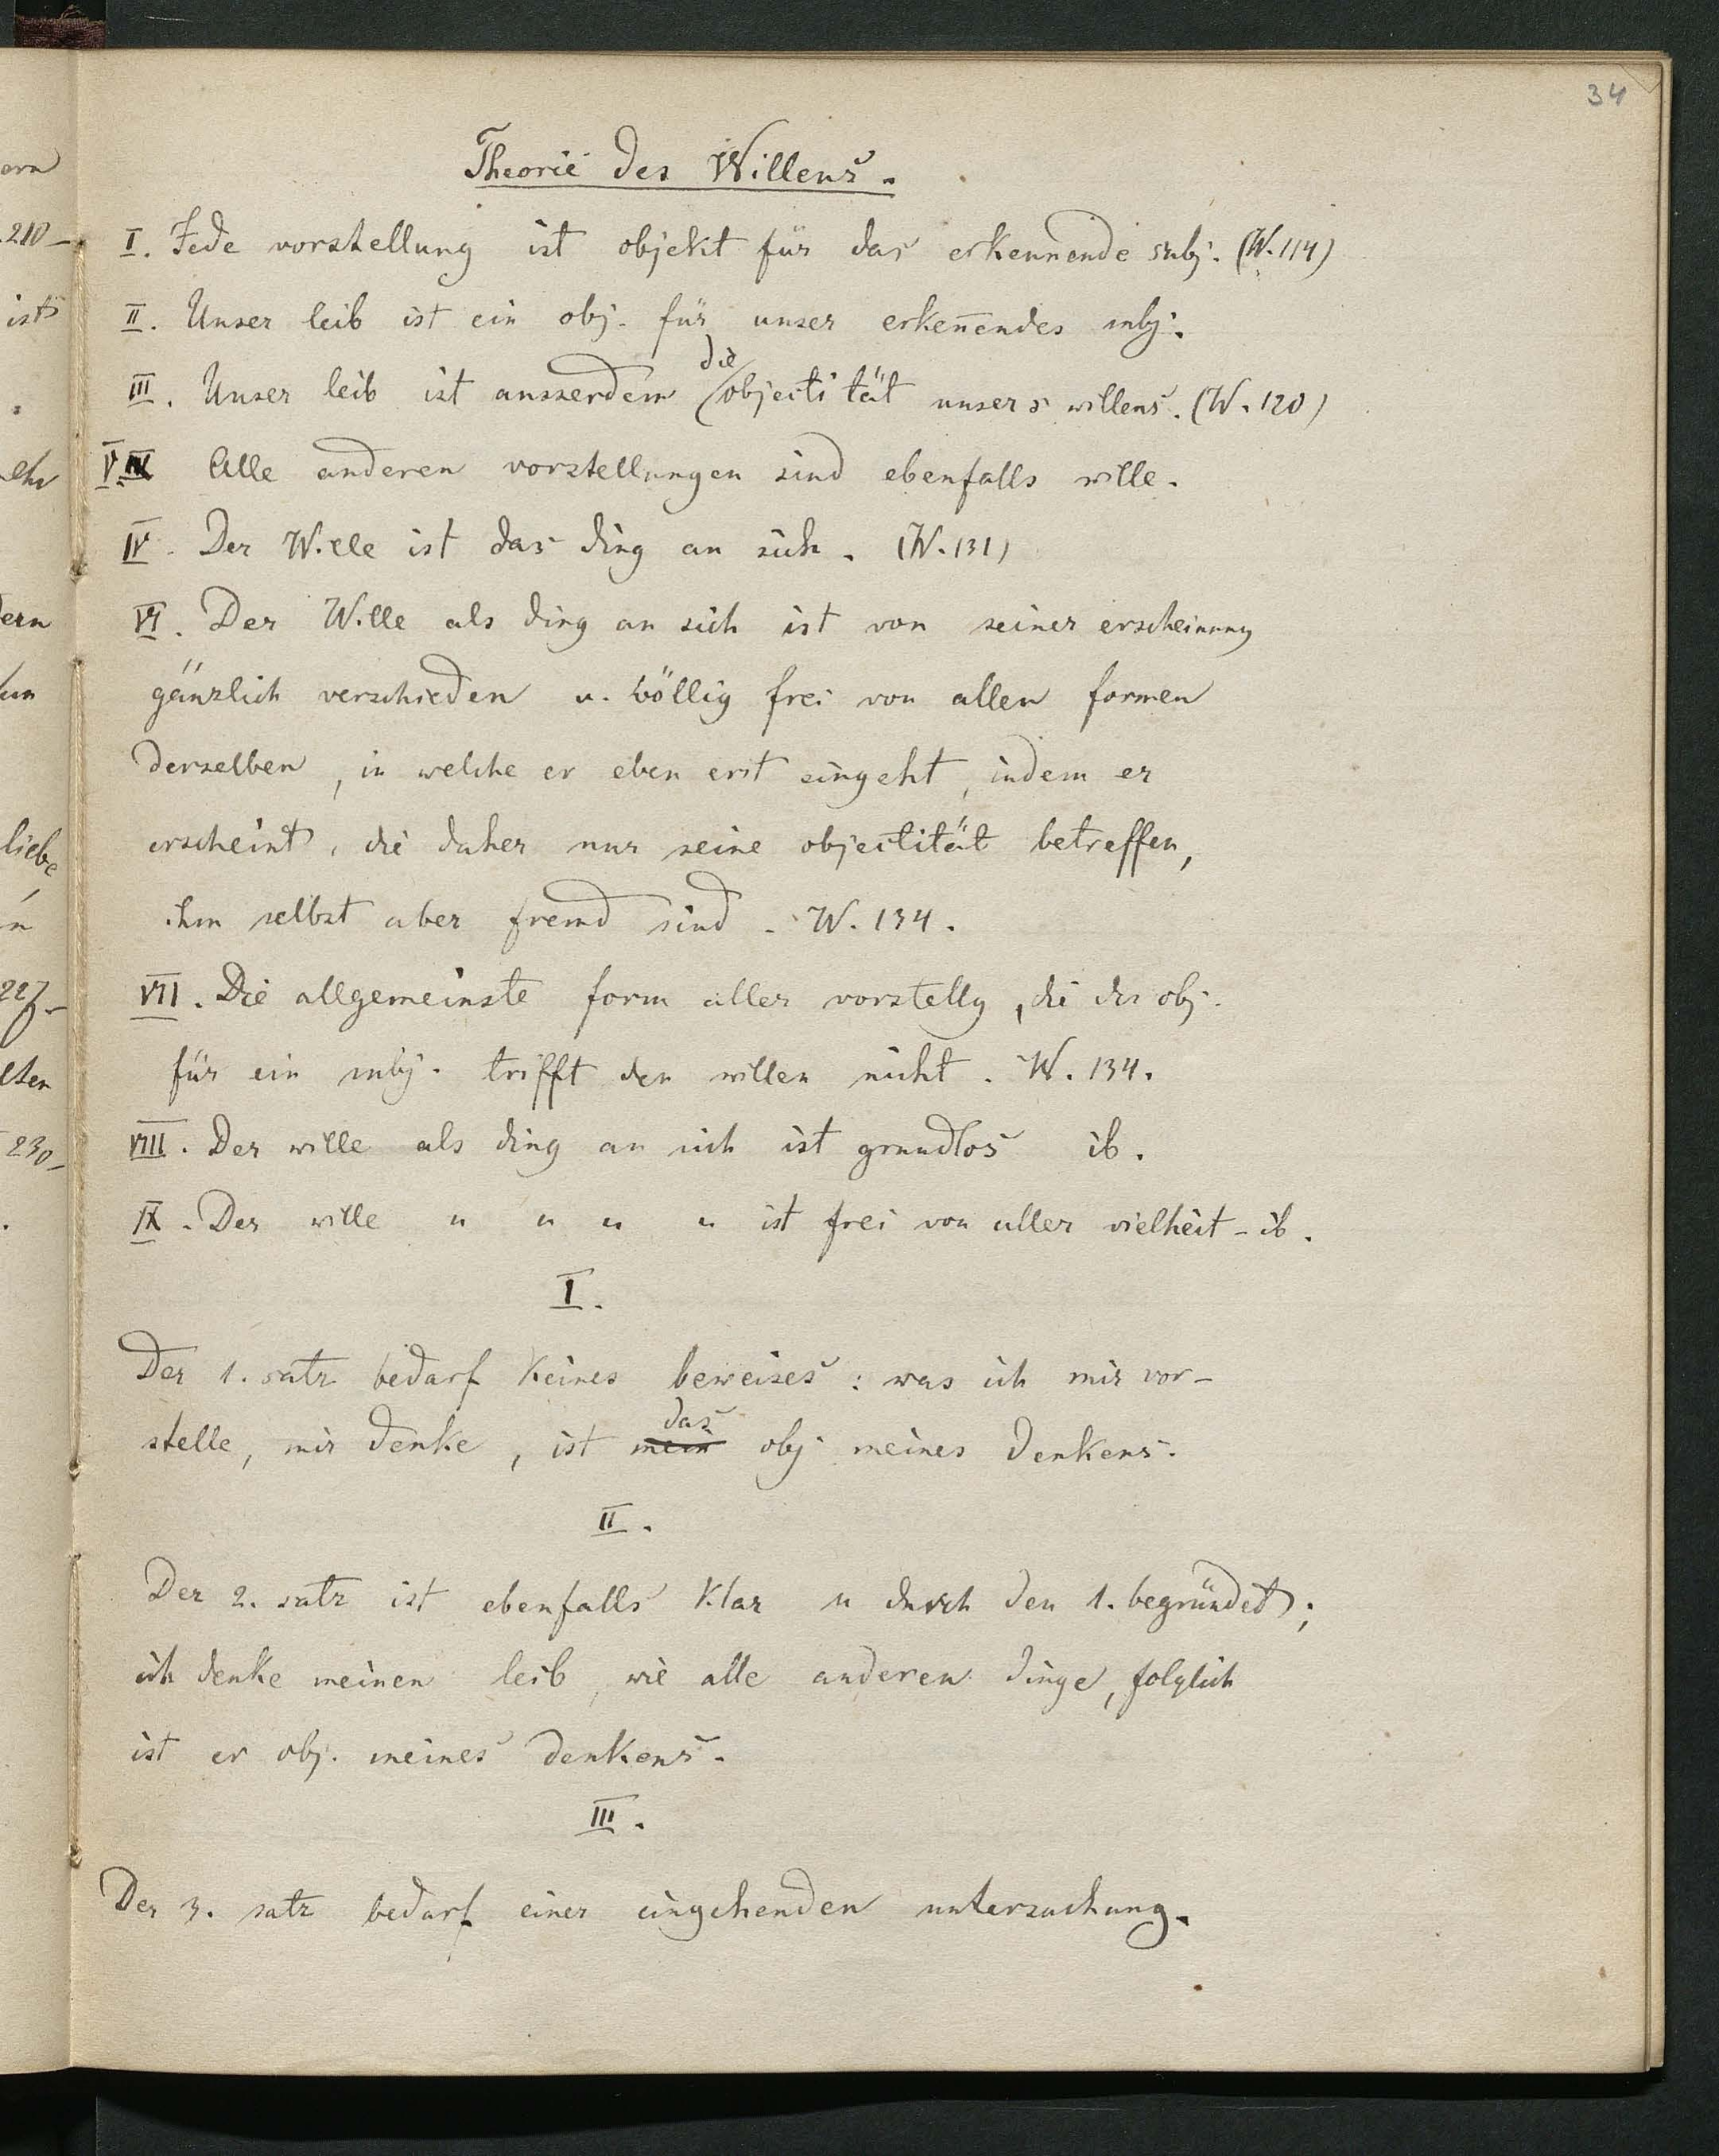 34
Theorie des Willens.
I. Jede vorstellung ist objekt für das erkennende subj. (W. 114)
II. Unser leib ist ein obj. für unser erkenendes subj.
die
III. Unser leib ist ausserdem objectität unsers willens. (W. 120)
V. Alle anderen vorstellungen sind ebenfalls wille.
IV. Der Wille ist das ding an sich. (W. 131)
VI. Der Wille als ding an sich ist von seiner erscheinung
gänzlich verschieden u. völlig frei von allen formen
derselben, in welche er eben erst eingeht, indem er
erscheint, die daher nur seine objectität betreffen,
ihm selbst aber fremd sind. W. 134.
VII. Die allgemeinste form aller vorstellg, die des obj.
für ein subj. trifft den willen nicht. W. 134.
VIII. Der wille als ding an sich ist grundlos ib.
IX. Der wille " " " " ist frei von aller vielheit - ib.
I.
Der 1. satz bedarf keines beweises: was ich mir vor-
das
stelle, mir denke, ist mein obj meines denkens.
II.
Der 2. satz ist ebenfalls klar u durch den 1. begründet;
ich denke meinen leib, wie alle anderen dinge, folglich
ist er obj. meines denkens.
III.
Der 3. satz bedarf einer eingehenden untersuchung.